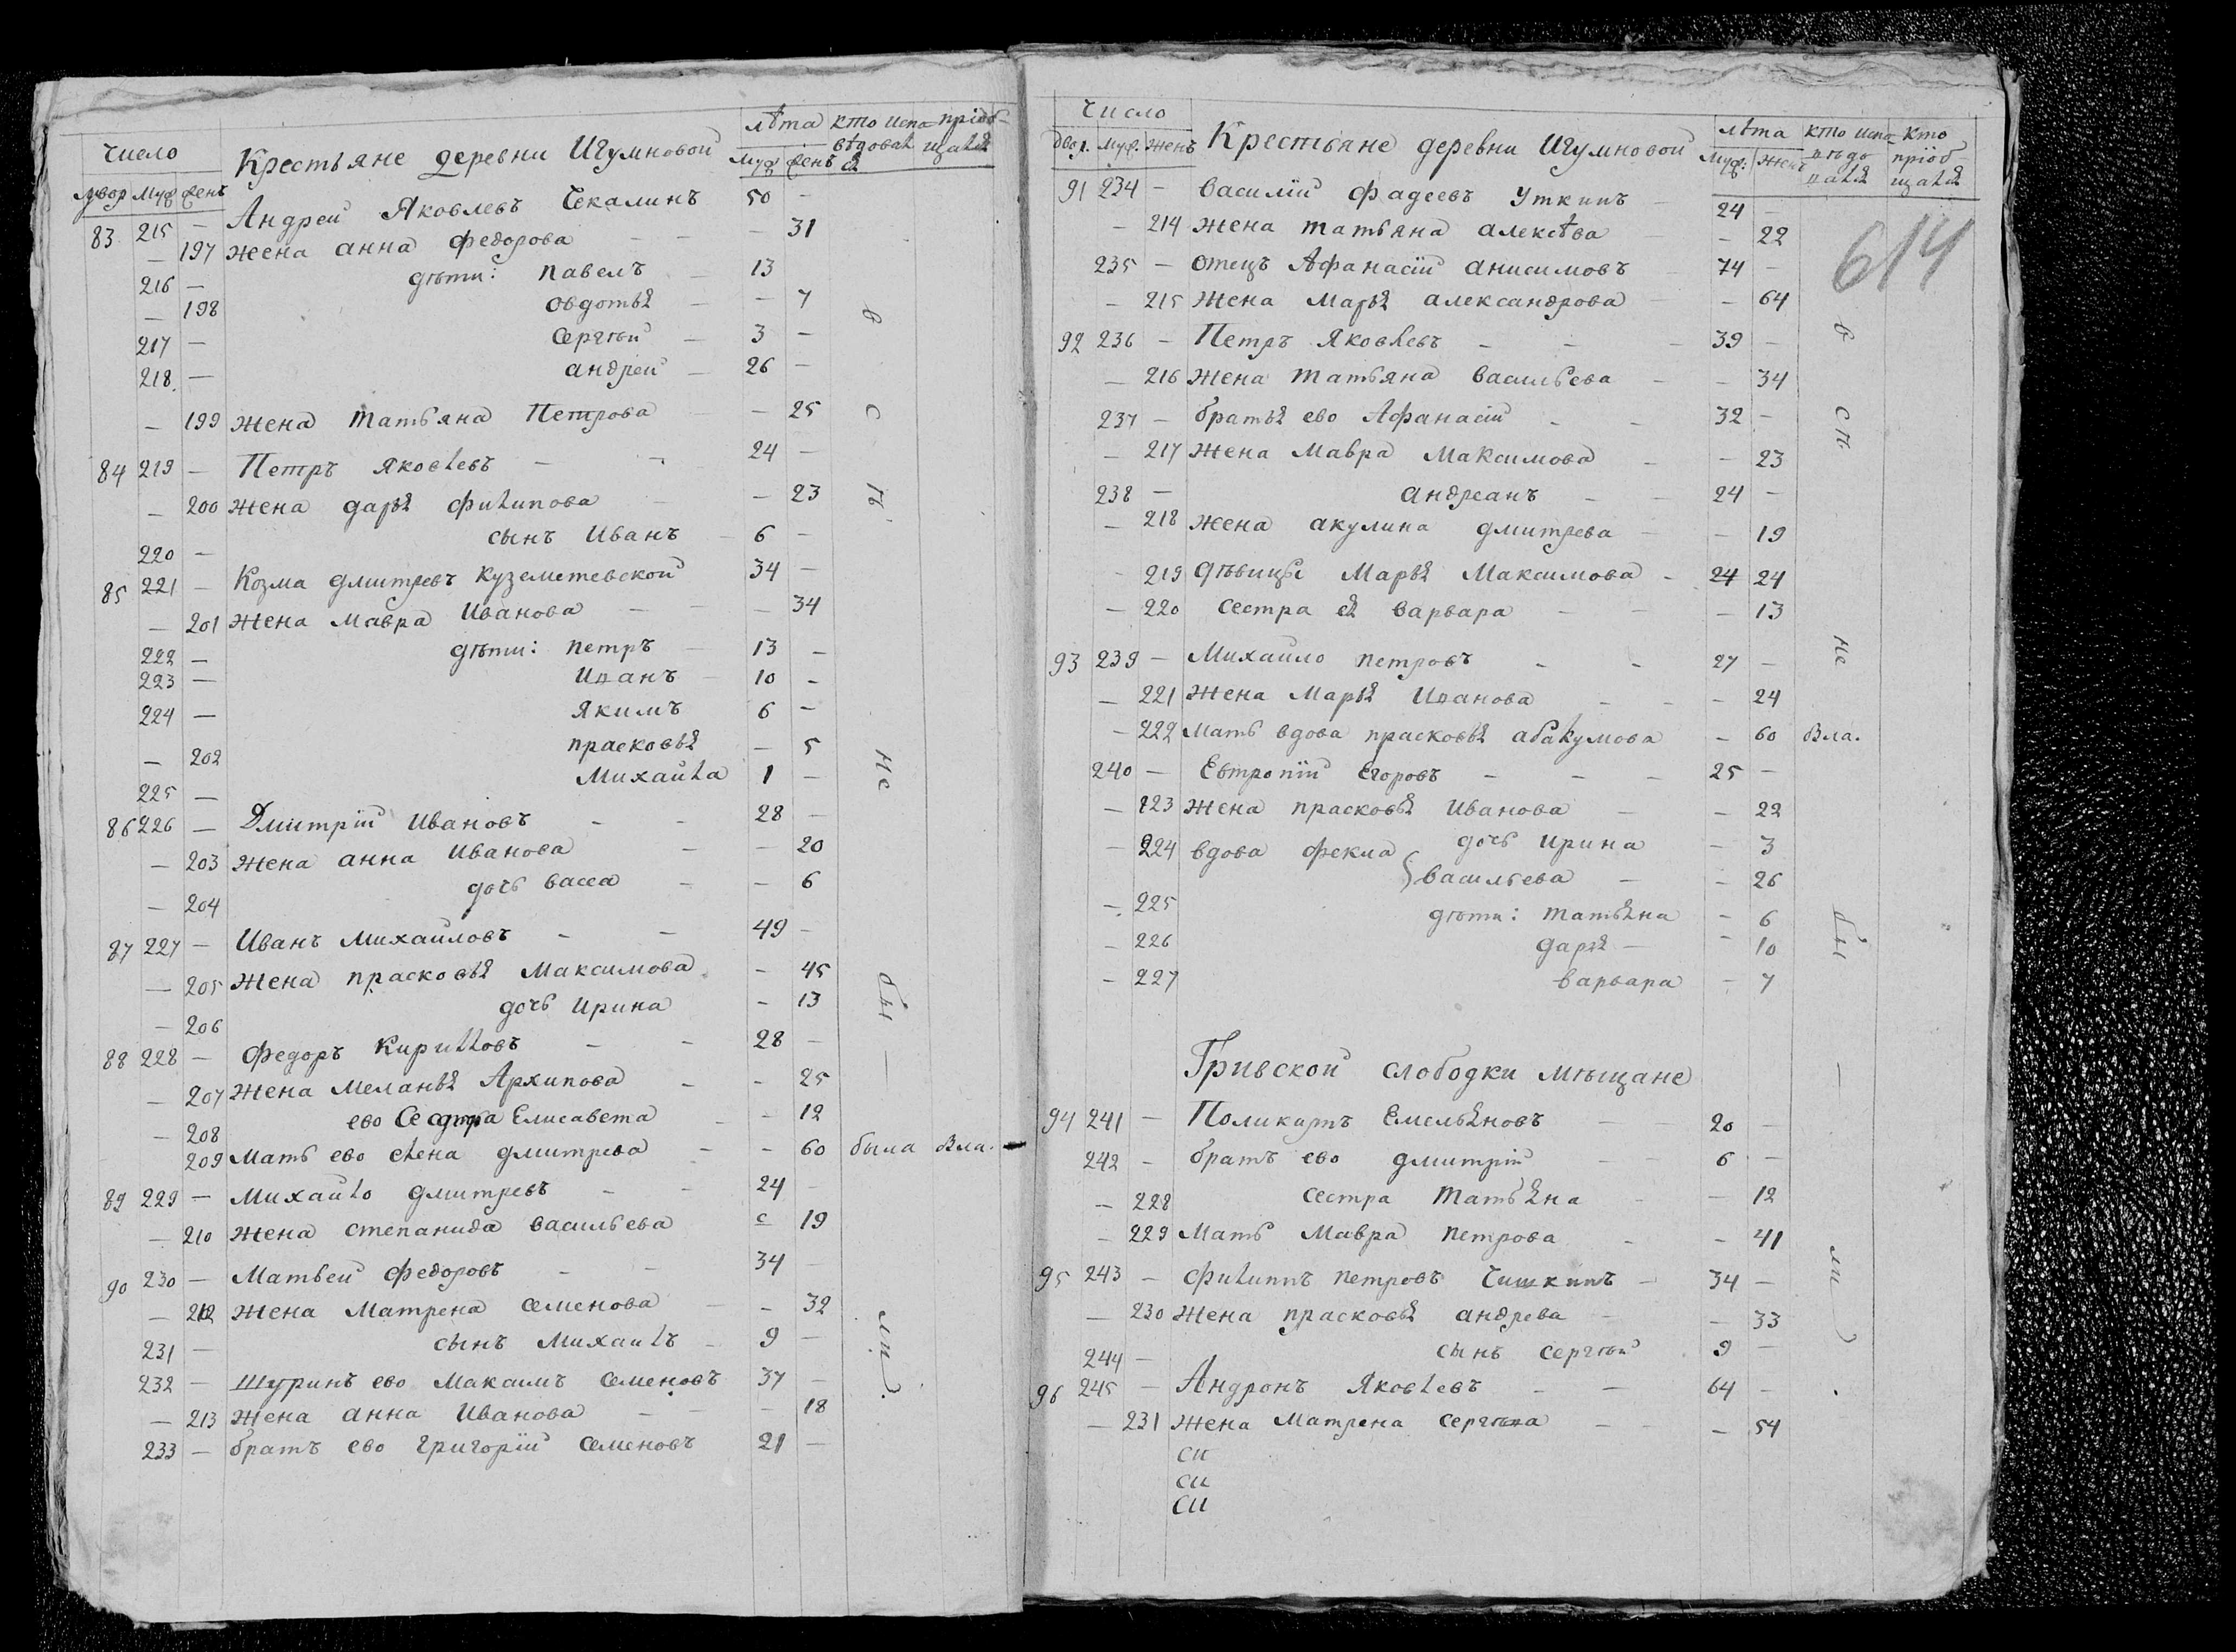 Число
Крестьяне деревни Игумновой
лѣта
кто испо-
вѣдовалъ
ся
пріоб-
щался
двор муж женъ
муж женъ
83 215 — Андрей Яковлевъ Чекалинъ 50 —
— 197 жена анна федорова — — — 31
216 — дѣти: павелъ — 13
— 198 овдотья — — 7
217 — сергѣй — 3 —
218 — андрей — 26 —
— 199 жена татьяна Петрова — 25
84 219 — Петръ яковлевъ — — 24 —
— 200 жена дарья филипова — — 23
220 — сынъ иванъ — 6 —
85 221 — Козма дмитревъ куземетевской 34 —
— 201 жена мавра иванова — — — 34
222 — дѣти: петръ — 13 —
223 — иванъ — 10 —
224 — якимъ 6 —
— 202 прасковья — 5
225 — михайла 1 —
86 226 — Дмитрій ивановъ — — 28 —
— 203 жена анна иванова — — 20
— 204 дочь васса — — 6
87 227 — Иванъ михайловъ — — 49 —
— 205 жена прасковья максимова — 45
— 206 дочь ирина — 13
88 228 — федоръ кириловъ — — 28 —
— 207 жена меланья Архипова — — 25
— 208 ево Сестра Елисавета — — 12
209 мать ево елена дмитрева — — 60 была Вла.
89 229 — михайло дмитревъ — — 24 —
— 210 жена степанида васильева с 19
90 230 — матвей федоровъ — — 34
— 212 жена матрена семенова — — 32
231 — сынъ михаилъ — 9 —
232 — шуринъ ево максимъ семеновъ 37 —
— 213 жена анна иванова — — — 18
233 — братъ ево григорій семеновъ 21 —
в с ѣ не бы — ли.
Число
Крестьяне деревни Игумновой
лѣта
кто испо-
вѣдо
вался
кто
пріоб
щался
двор. муж. женъ
муж. женъ
614
91 234 — василій фадеевъ уткинъ — 24 —
— 214 жена татьяна алексѣва — 22
235 — отецъ Афанасій анисимовъ 74 —
— 215 жена марья александрова — 64
92 236 — Петръ яковлевъ — — — 39 —
— 216 жена татьяна васильева — — 34
237 — братья ево Афанасій — — 32 —
— 217 жена мавра максимова — — 23
238 — андреанъ — — 24 —
— 218 жена акулина дмитрева — — 19
— 219 дѣвицы марья максимова — 24 24
— 220 сестра ея варвара — — — 13
93 239 — михайло петровъ — — 27 —
— 221 жена марья иванова — — — 24
— 222 мать вдова прасковья абакумова — 60 Вла.
240 — Евтропій егоровъ — — — 25 —
— 223 жена прасковья иванова — — 22
— 224 дочь ирина — 3
вдова фекла васильева — — 26
— 225 дѣти: татьяна — 6
— 226 дарья — — 10
— 227 варвара — 7
Гривской слободки мѣщане
94 241 — Поликарпъ Емельяновъ — — 20 —
242 — братъ ево дмитрій — — 6 —
— 228 сестра татьяна — — 12
— 229 мать мавра петрова — — 41
95 243 — филиппъ петровъ чишкинъ — 34 —
— 230 жена прасковья андрева — — 33
244 — сынъ сергѣй 9 —
96 245 — Андронъ яковлевъ — — 64 —
— 231 жена матрена сергѣва — — — 54
си
си
си
в сѣ не бы — ли.